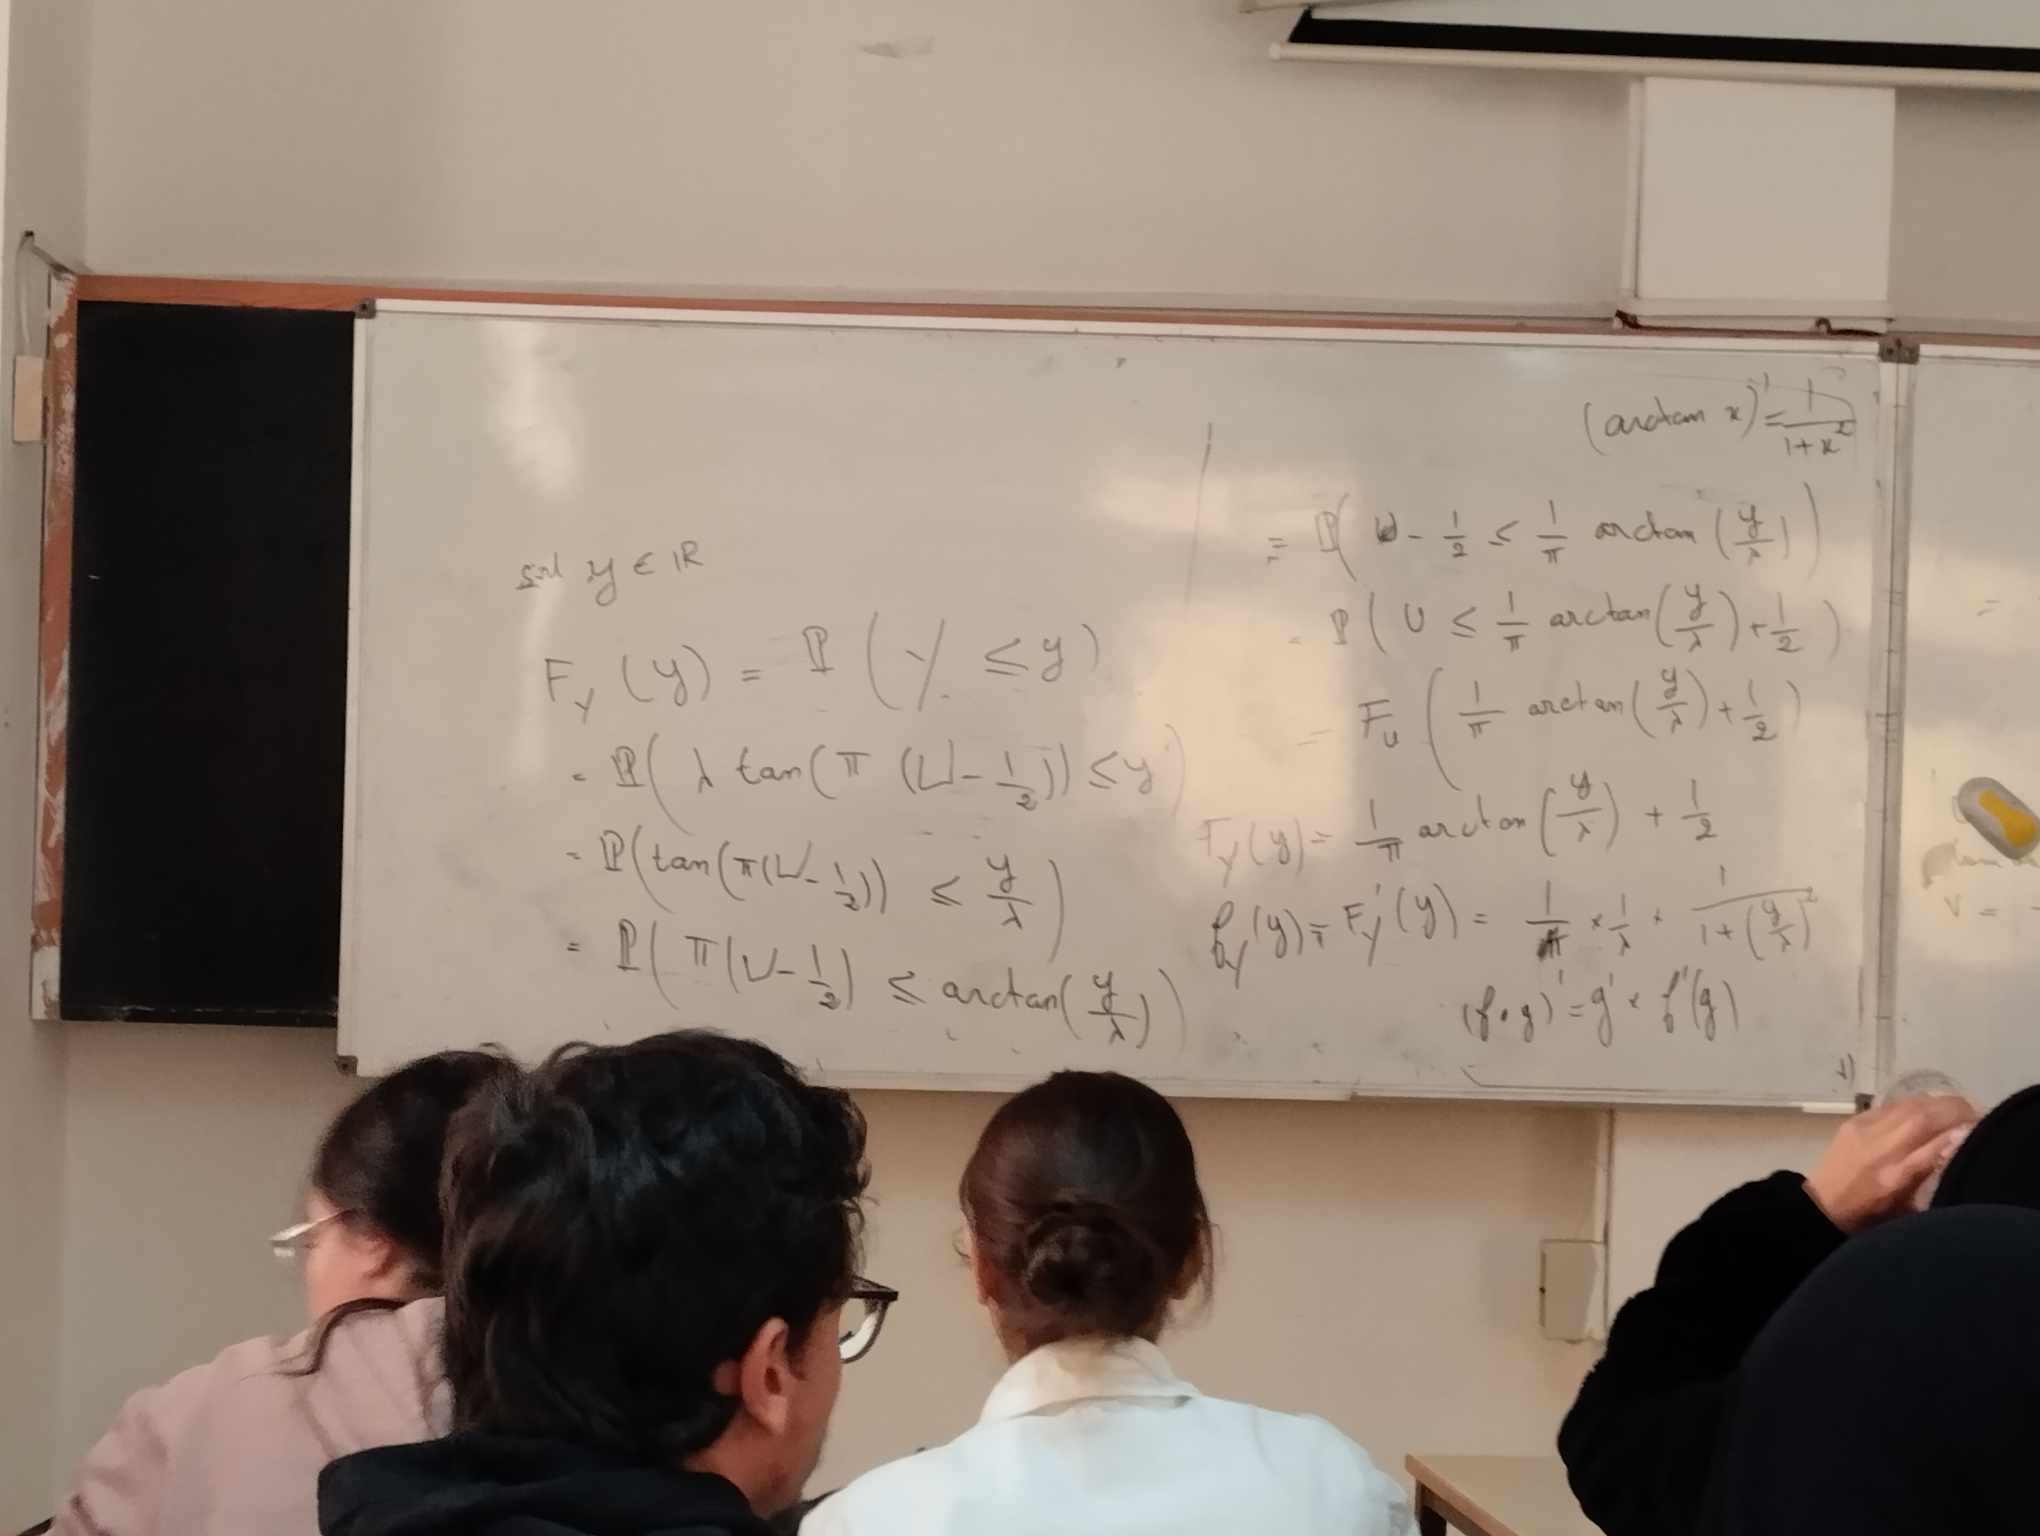 soit y ∈ ℝ
F_Y(y) = ℙ(Y ≤ y)
= ℙ(λ tan(π(U - 1/2)) ≤ y)
= ℙ(tan(π(U - 1/2)) ≤ y/λ)
= ℙ(π(U - 1/2) ≤ arctan(y/λ))
(arctan x)' = 1/(1+x²)
= ℙ(U - 1/2 ≤ 1/π arctan(y/λ))
= ℙ(U ≤ 1/π arctan(y/λ) + 1/2)
= F_U(1/π arctan(y/λ) + 1/2)
F_Y(y) = 1/π arctan(y/λ) + 1/2
f_Y(y) = F_Y'(y) = 1/π × 1/λ × 1/(1+(y/λ)²)
(f∘g)' = g' × f'(g)